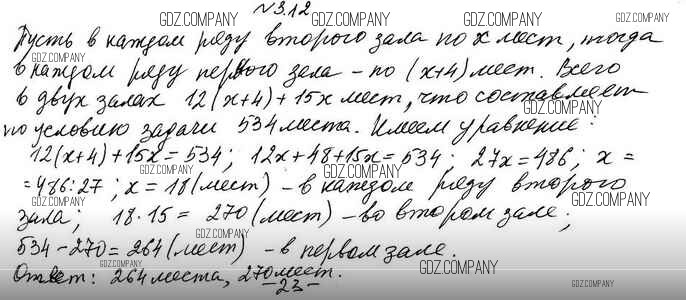 №3.12
Пусть в каждом ряду второго зала по x мест, тогда
в каждом ряду первого зала – по (x+4) мест. Всего
в двух залах 12(x+4)+15x мест, что составляет
по условию задачи 534 места. Имеем уравнение:
12(x+4)+15x=534; 12x+48+15x=534; 27x=486; x=
=486:27; x=18(мест) – в каждом ряду второго
зала; 18·15=270(мест) – во втором зале;
534-270=264(мест) – в первом зале.
Ответ: 264 места, 270 мест.
-23-
GDZ.COMPANY
GDZ.COMPANY
GDZ.COMPANY
GDZ.COMPANY
GDZ.COMPANY
GDZ.COMPANY
GDZ.COMPANY
GDZ.COMPANY
GDZ.COMPANY
GDZ.COMPANY
GDZ.COMPANY
GDZ.COMPANY
GDZ.COMPANY
GDZ.COMPANY